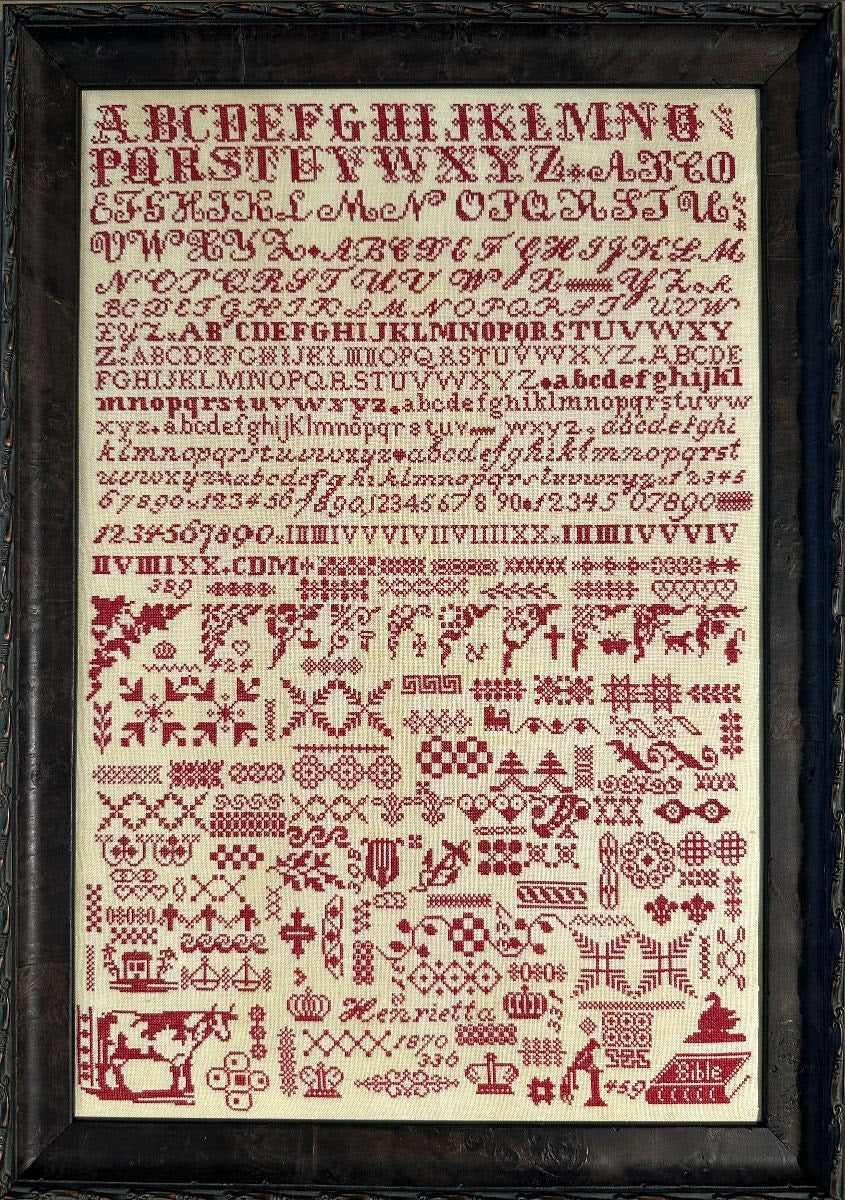 ABCDEFGHIJKLMNO
PQRSTUVWXYZ*ABCD
EFGHIKLMN OPQRSTU
VWXYZ•ABCDEFGHIJKLM
NOPQRSTUVW X YZ•A
BCDEFGHIKLMNOPQRSTUVW
XYZ•ABCDEFGHIJKLMNOPQRSTUVWXY
Z•ABCDEFGHIJKLMNOPQRSTUVWXYZ•ABCDE
FGHIJKLMNOPQRSTUVWXYZ•abcdefghijkl
mnopqrstuvwxyz•abcdefghiklmnopqrstuvw
xyz•abcdefghijklmnopqrstuv wxyz•abcdefghi
klmnopqrstuvwxyz♥abcdefghiklmnopqrst
uvwxyz abcdefghiklmnopqrstuvwxyz•12345
67890•1234567890•1234567890•12345 67890
1234567890•IIIIIIIVVVIVIIVIIIIXX•IIIIIIIVVVIV
IIVIIIIXX•CDM
389
424
305
Henrietta
337
1870
336
459
Bible